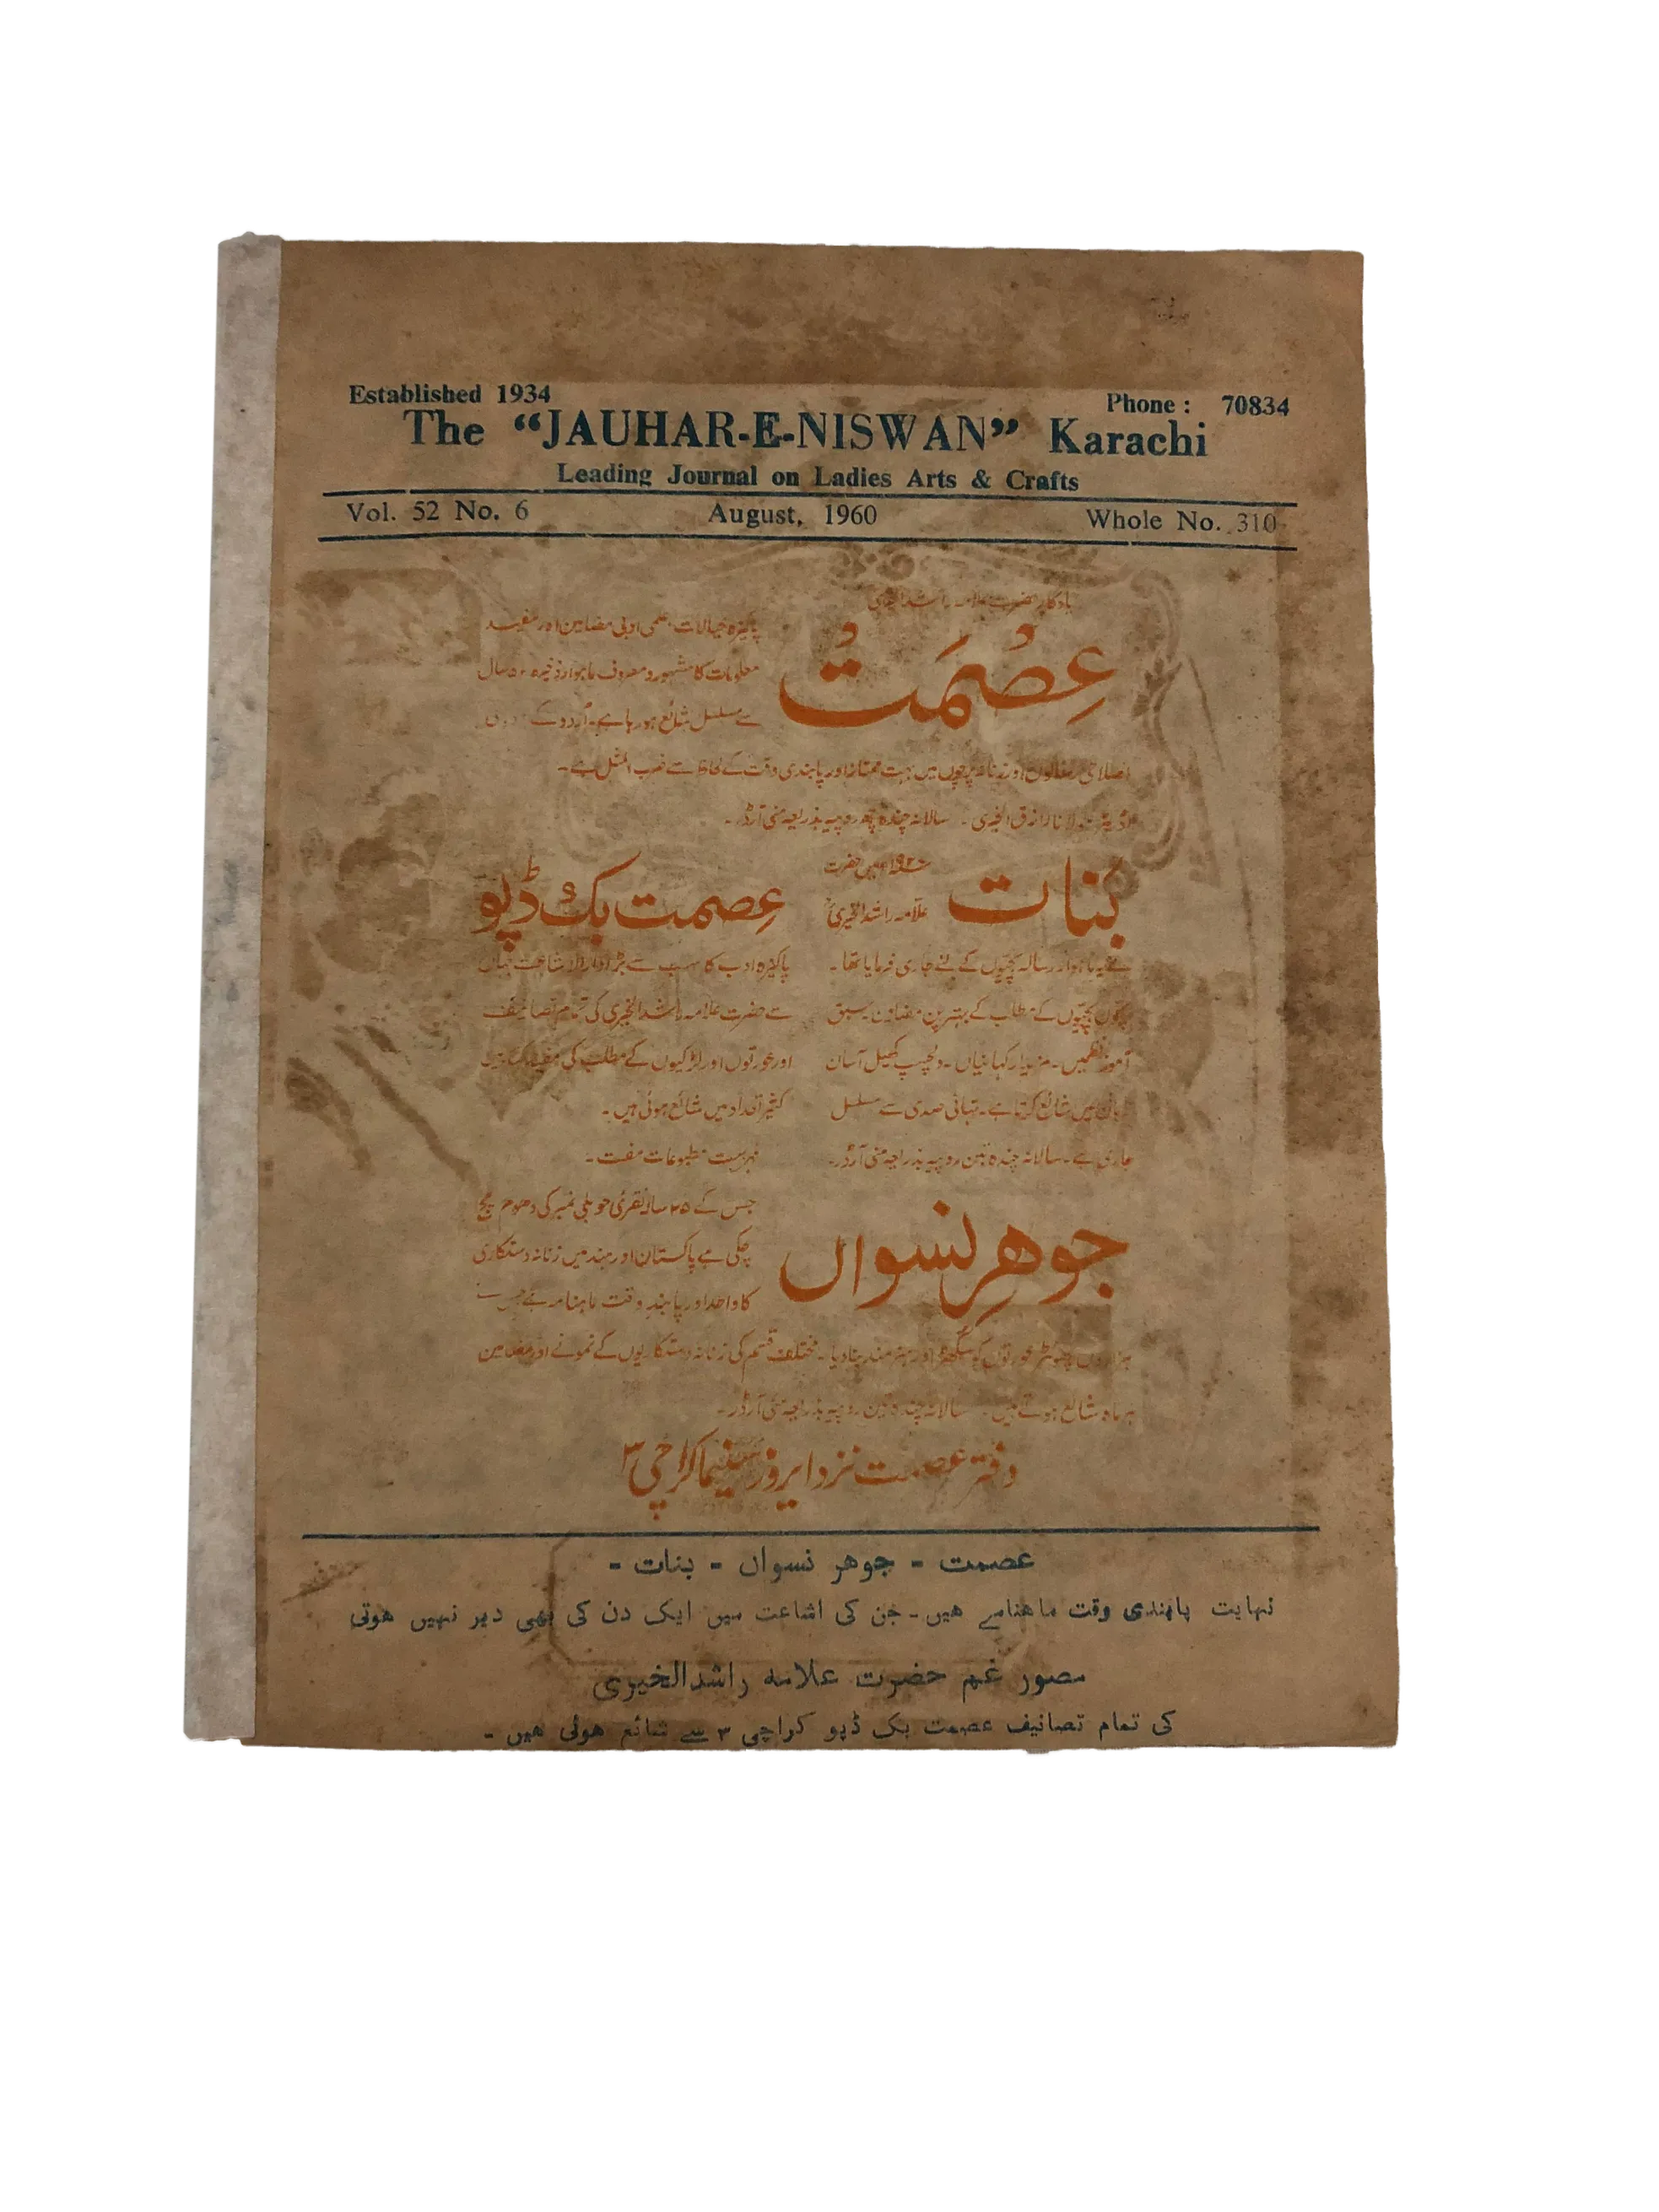 Established 1934
Phone : 70834
The “JAUHAR-E-NISWAN” Karachi
Leading Journal on Ladies Arts & Crafts
Vol. 52 No. 6 August, 1960 Whole No. 310
یادگار حضرت علامہ راشد الخیری
عِصْمَتْ
پاکیزہ خیالات، علمی ادبی مضامین اور مفید
معلومات کا مشہور و معروف ماہوار ذخیرہ ۵۰ سال
سے مسلسل شائع ہو رہا ہے۔ اُردو کے
اصلاحی رسالوں اور زنانہ پرچوں میں بہت ممتاز اور پابندی وقت کے لحاظ سے ضرب المثل ہے۔
اڈیٹر مولانا رازق الخیری۔ سالانہ چندہ چھ روپیہ بذریعہ منی آرڈر۔
بَنات
میں حضرت
علّامہ راشد الخیریؒ
نے یہ ماہوار رسالہ بچیّوں کے لئے جاری فرمایا تھا۔
بچوں بچیّوں کے مطلب کے بہترین مضامین سبق
آموز نظمیں۔ مزیدار کہانیاں۔ دلچسپ کھیل آسان
زبان میں شائع کرتا ہے۔ تہائی صدی سے مسلسل
جاری ہے۔ سالانہ چندہ تین روپیہ بذریعہ منی آرڈر۔
عِصمت بُک ڈپو
پاکیزہ ادب کا سب سے بڑا دارالاشاعت جہاں
سے حضرت علامہ راشد الخیری کی تمام تصانیف
اور عورتوں اور لڑکیوں کے مطلب کی مفید کتابیں
کثیر تعداد میں شائع ہوئی ہیں۔
فہرست مطبوعات مفت۔
جوهرِ نسواں
جس کے ۲۵ سالہ نقرئی جوبلی نمبر کی دھوم مچ
چکی ہے پاکستان اور ہند میں زنانہ دستکاری
کا واحد اور پابندِ وقت ماہنامہ ہے جس نے
ہزاروں پھوہڑ عورتوں کو سگھڑ اور ہنرمند بنا دیا۔ مختلف قسم کی زنانہ دستکاریوں کے نمونے اور مضامین
ہر ماہ شائع ہوتے ہیں۔ سالانہ چندہ تین روپیہ بذریعہ منی آرڈر۔
دفتر عصمت نزد ایروز سنیما کراچی ۳
عصمت - جوهر نسواں - بنات -
نہایت پابندی وقت ماهنامے هیں۔ جن کی اشاعت میں ایک دن کی بھی دیر نہیں هوتی
مصور غم حضرت علامہ راشدالخیری
کی تمام تصانیف عصمت بک ڈپو کراچی ۳ سے شائع هوئی هیں -